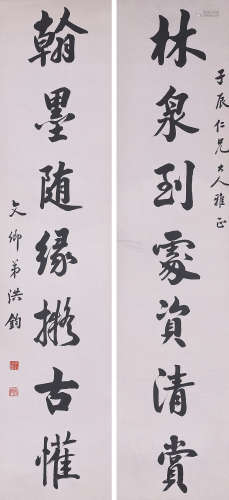 子辰仁兄大人雅正
林泉到處資清賞
翰墨随緣擬古懽
文卿弟洪鈞